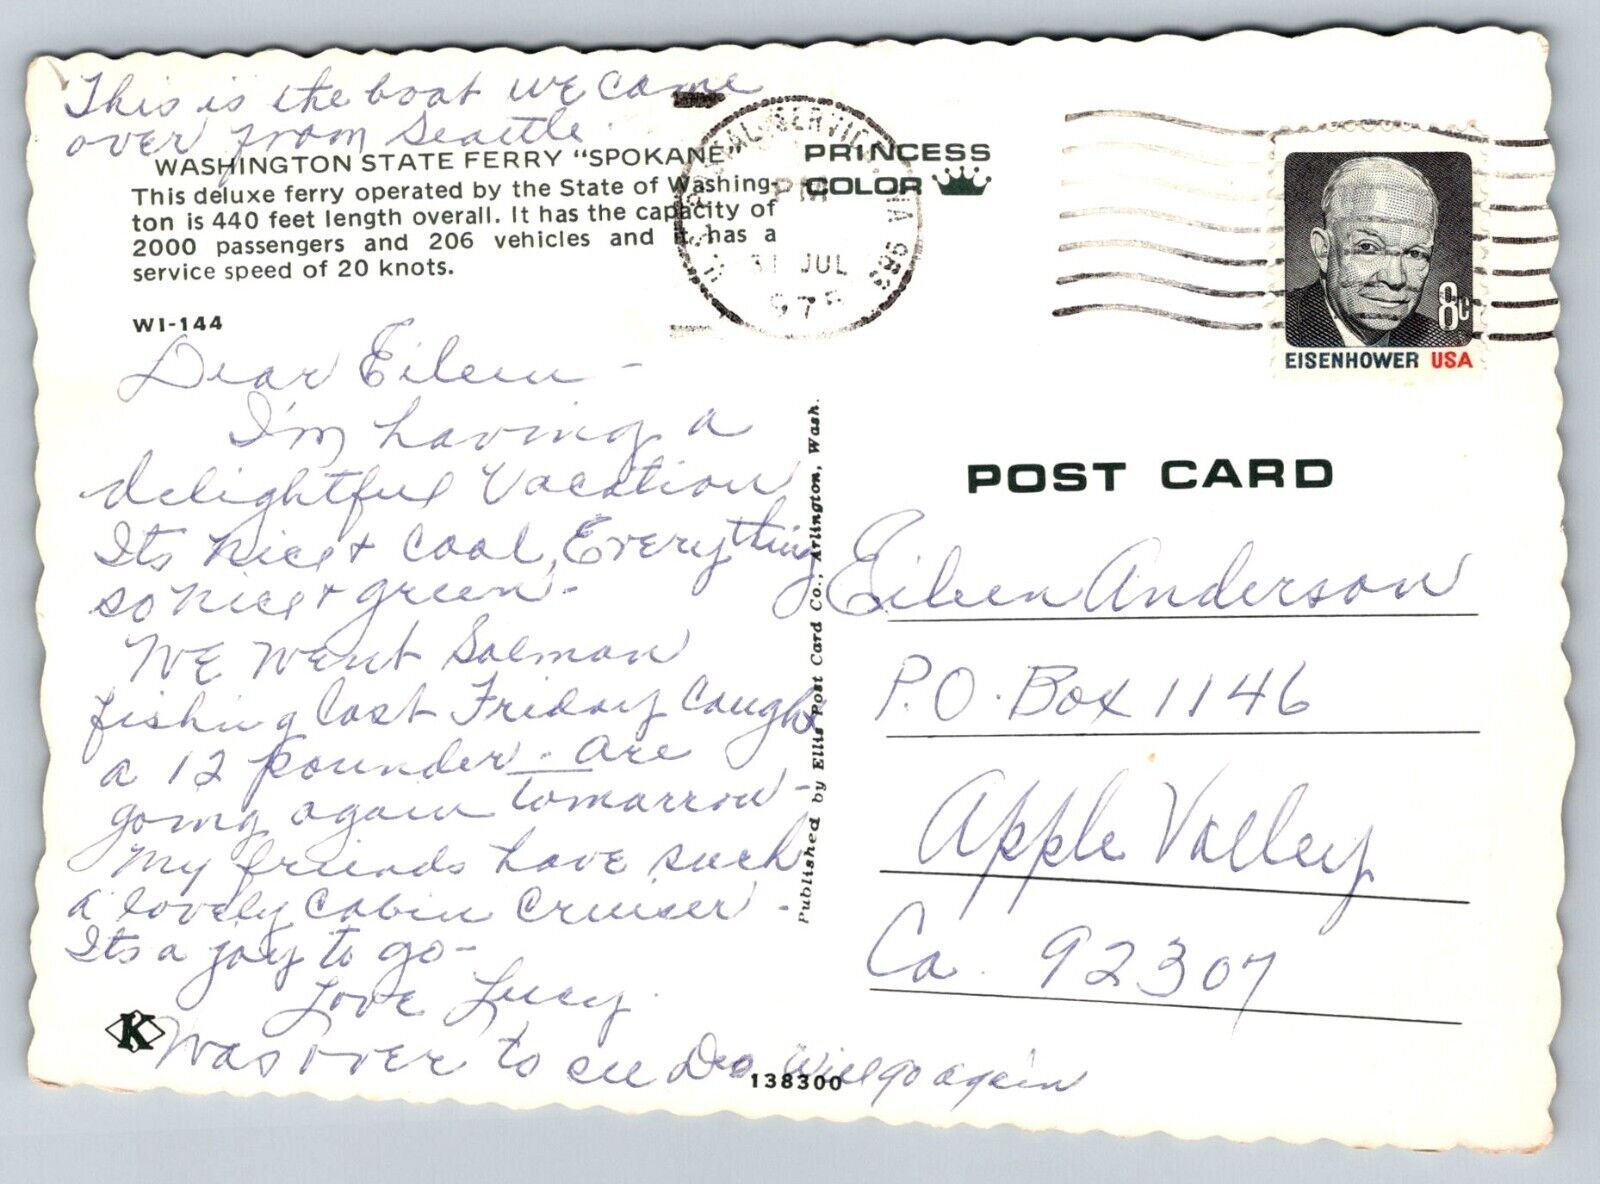 This is the boat we came
over from Seattle.
WASHINGTON STATE FERRY "SPOKANE"
This deluxe ferry operated by the State of Washing-
ton is 440 feet length overall. It has the capacity of
2000 passengers and 206 vehicles and it has a
service speed of 20 knots.
WI-144
Dear Eileen -
I'm having a
delightful Vacation
Its nice + cool, Everything
so nice + green -
We went Salmon
fishing last Friday Caught
a 12 pounder - are
going again tomorrow -
My friends have such
a lovely Cabin Cruiser -
Its a joy to go -
Love Lucy.
Was over to see Will go again
K
138300
Published by Ellis Post Card Co., Arlington, Wash.
PRINCESS
COLOR
POSTAL SERVICE
PM
31 JUL
8c
EISENHOWER USA
POST CARD
Eileen Anderson
P.O. Box 1146
Apple Valley
Ca. 92307